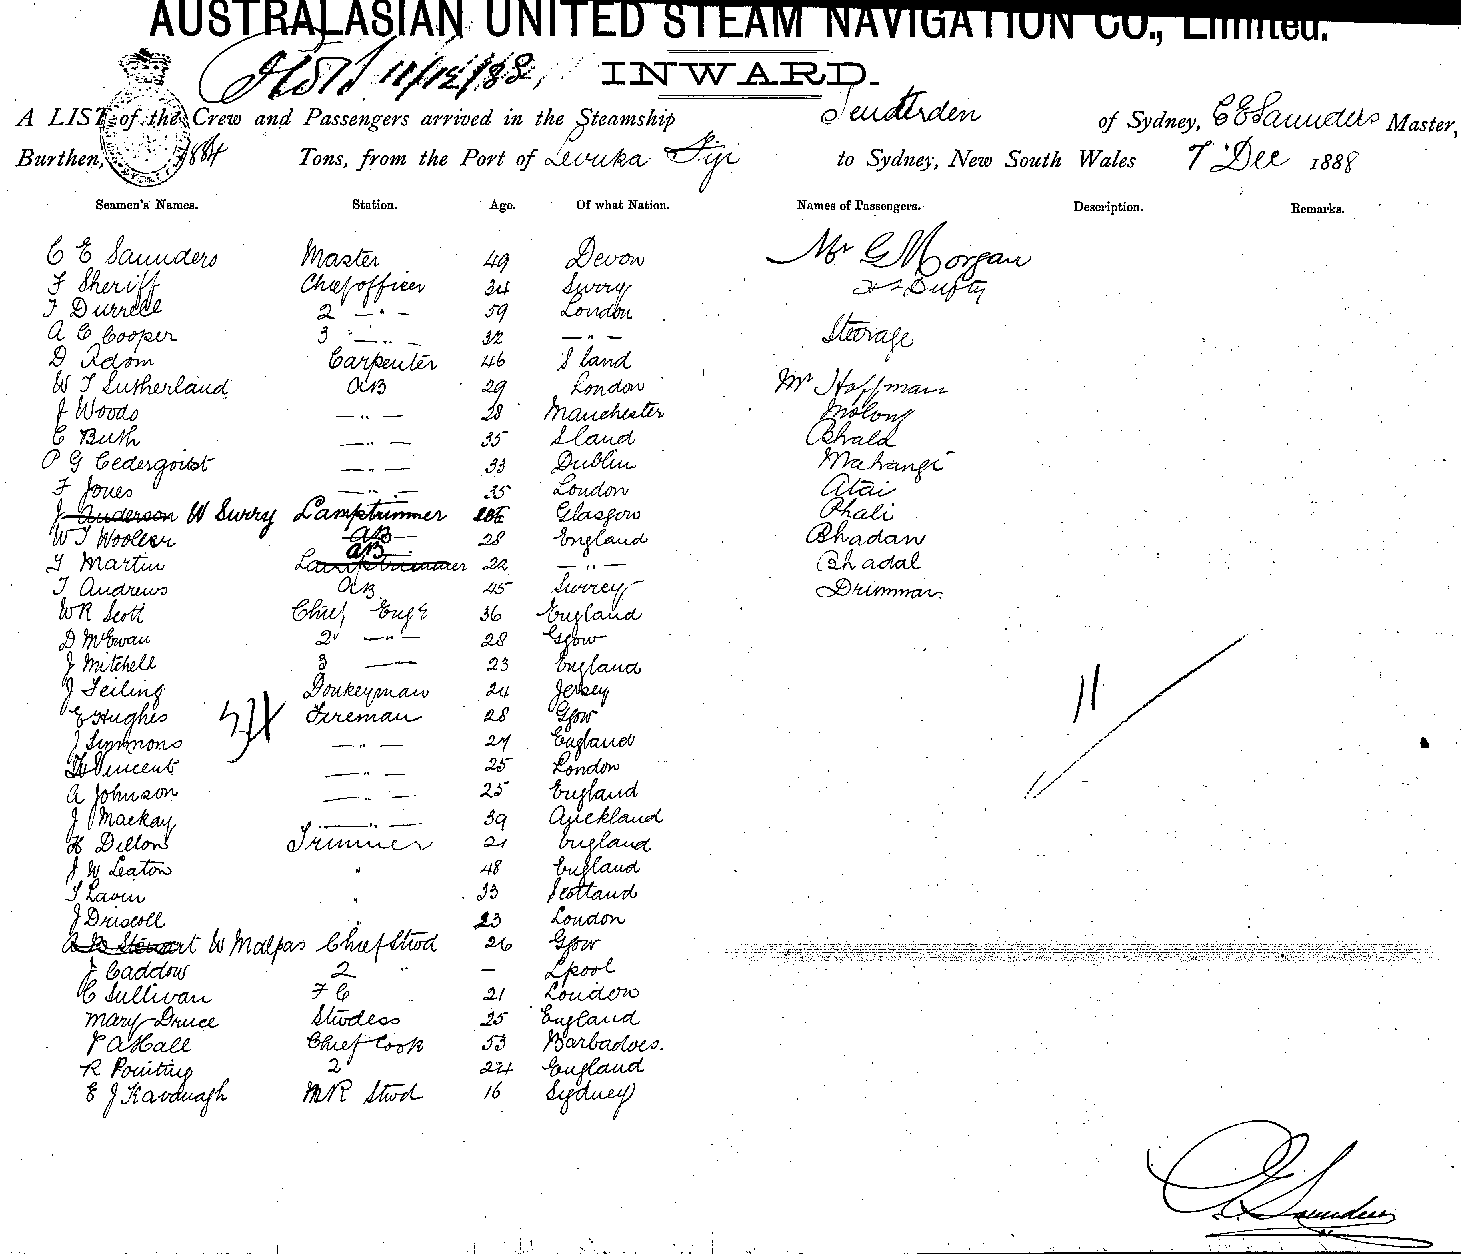 AUSTRALASIAN UNITED STEAM NAVIGATION CO., Limited.
11/12/88
INWARD.
A LIST of the Crew and Passengers arrived in the Steamship Tenterden of Sydney, C E Saunders Master,
Burthen, Tons, from the Port of Levuka Fiji to Sydney, New South Wales 7 Dec 1888
Seamen's Names. Station. Age. Of what Nation. Names of Passengers. Description. Remarks.
C E Saunders Master 49 Devon Mr G Morgan
F Sheriff Chief officer 34 Surry Dufty
T Durrell 2 — " — 59 London
A C Cooper 3 — " — 32 — " — Steerage
D Adam Carpenter 46 Sland
W T Sutherland AB 29 London Mr Hoffman
J Woods — " — 28 Manchester Molony
C Buth — " — 35 Sland Bhala
P G Cedergvist — " — 33 Dublin Mahangi
F Jones — " — 35 London Atai
J Anderson W Surry Lamptrimmer Glasgow Phali
W T Wooller AB 28 England Bhadan
T Martin AB Lamptrimmer 22 — " — Bhadal
T Andrews AB 45 Surrey Drimman
W R Scott Chief Engr 36 England
D McEwan 2 — " — 28 Gsgow
J Mitchell 3 — 23 England
J Teiling Donkeyman 24 Jersey
E Hughes Fireman 28 Ggow
J Simmons — " — 27 England
Vincent — " — 25 London
A Johnson — " — 25 England
J Mackay — " — 39 Auckland
H Dillon Trimmer 21 England
J W Leaton " 48 England
T Lavin " 33 Scotland
J Driscoll " 23 London
A B Stewart W Malpas Chief Stwd 26 Ggow
J Caddow 2 " — Lpool
C Sullivan F C 21 London
Mary Druce Stwdess 25 England
J A Hall Chief Cook 53 Barbadoes.
R Pointing 2 24 England
E J Kavanagh M R Stwd 16 Sydney
11
C E Saunders